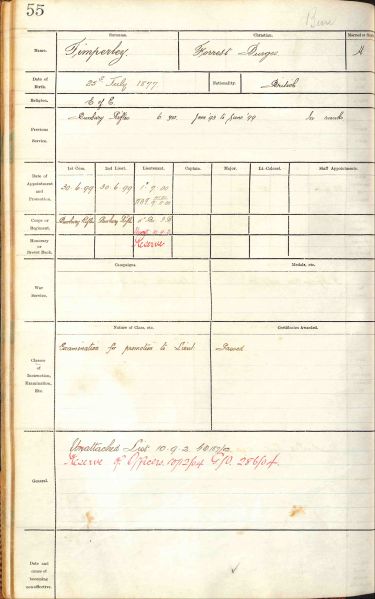 55
Surname.
Christian.
Married or Single.
Name.
Timperley.
Forrest Burges
M
Date of Birth.
25th July 1877
Nationality.
British
Religion.
C of E.
Previous Service.
Bunbury Rifles 6 yrs. June '93 to June '99 In ranks.
1st Com.
2nd Lieut.
Lieutenant.
Captain.
Major.
Lt.-Colonel.
Staff Appointments.
Date of Appointment and Promotion.
30.6.99
30.6.99
Corps or Regiment.
Bunbury Rifles
Bunbury Rifles
Honorary or Brevet Rank.
Reserve
Campaigns.
Medals, etc.
War Service.
Nature of Class, etc.
Certificates Awarded.
Classes of Instruction, Examination, Etc.
Examination for promotion to Lieut.
Passed
General.
Unattached List 10.9.2.
Reserve of Officers. G.O. 256/04.
Date and cause of becoming non-effective.